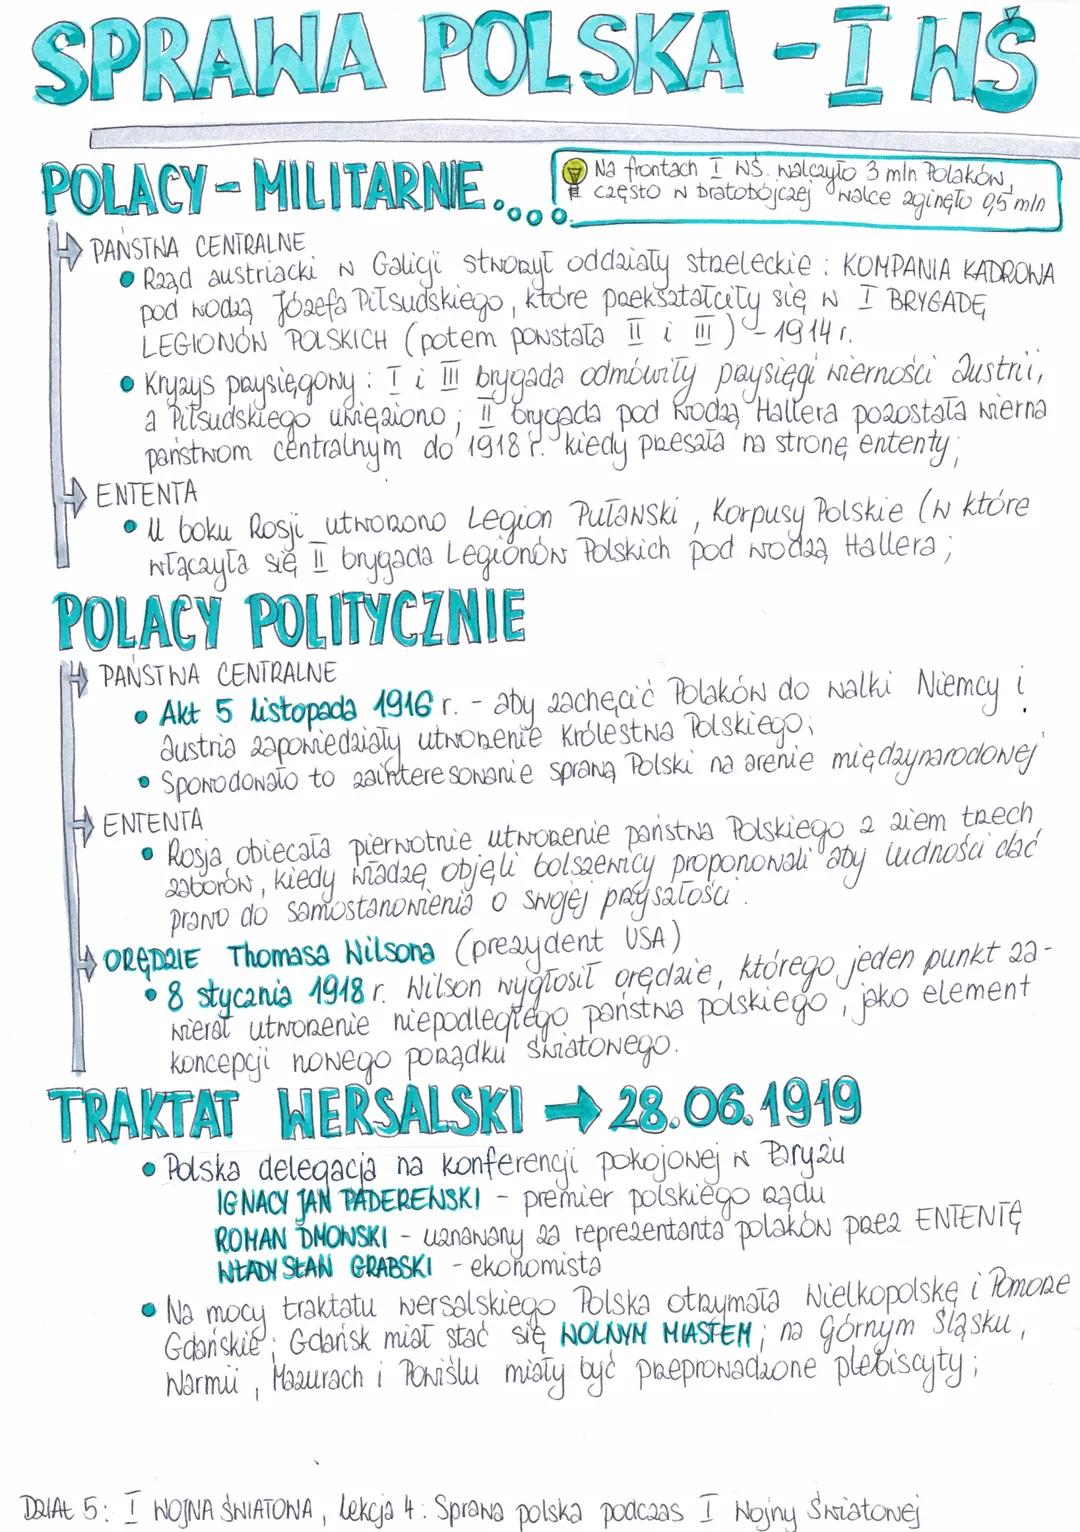 SPRAWA POLSKA - I WŚ
POLACY - MILITARNIE...
Na frontach I WŚ. walczyło 3 mln Polaków,
często w bratobójczej walce zginęło 0,5 mln
PAŃSTWA CENTRALNE
• Rząd austriacki w Galicji stworzył oddziały strzeleckie: KOMPANIA KADROWA
pod wodzą Józefa Piłsudskiego, które przekształciły się w I BRYGADĘ
LEGIONÓW POLSKICH (potem powstała II i III) - 1914 r.
• Kryzys przysięgowy: I i III brygada odmówiły przysięgi wierności Austrii,
a Piłsudskiego uwięziono; II brygada pod wodzą Hallera pozostała wierna
państwom centralnym do 1918 r. kiedy przeszła na stronę ententy;
ENTENTA
• U boku Rosji utworzono Legion Puławski, Korpusy Polskie (w które
włączyła się II brygada Legionów Polskich pod wodzą Hallera;
POLACY POLITYCZNIE
PAŃSTWA CENTRALNE
• Akt 5 listopada 1916 r. - aby zachęcić Polaków do walki Niemcy i
Austria zapowiedziały utworzenie Królestwa Polskiego;
• Spowodowało to zainteresowanie sprawą Polski na arenie międzynarodowej
ENTENTA
• Rosja obiecała pierwotnie utworzenie państwa Polskiego z ziem trzech
zaborów, kiedy władzę objęli bolszewicy proponowali aby ludności dać
prawo do samostanowienia o swojej przyszłości.
ORĘDZIE Thomasa Wilsona (prezydent USA)
• 8 stycznia 1918 r. Wilson wygłosił orędzie, którego jeden punkt za-
wierał utworzenie niepodległego państwa polskiego, jako element
koncepcji nowego porządku światowego.
TRAKTAT WERSALSKI → 28.06.1919
• Polska delegacja na konferencji pokojowej w Paryżu
IGNACY JAN PADEREWSKI - premier polskiego rządu
ROMAN DMOWSKI - uznawany za reprezentanta polaków przez ENTENTĘ
WŁADYSŁAW GRABSKI - ekonomista
• Na mocy traktatu wersalskiego Polska otrzymała Wielkopolskę i Pomorze
Gdańskie; Gdańsk miał stać się WOLNYM MIASTEM; na Górnym Śląsku,
Warmii, Mazurach i Powiślu miały być przeprowadzone plebiscyty;
DZIAŁ 5: I WOJNA ŚWIATOWA, lekcja 4: Sprawa polska podczas I Wojny Światowej